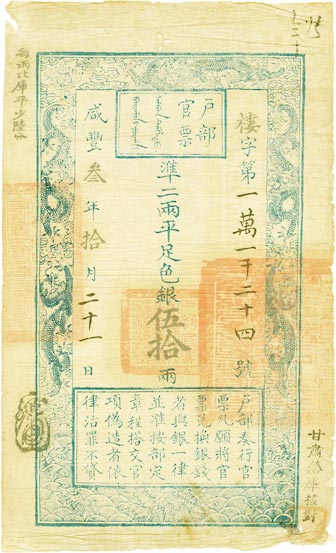 戶部
官票
棲字第一萬一千二十四號
準二兩平足色銀伍拾兩
咸豐叁年拾月二十一日
戶部奏行官
票凡願將官
票兌換銀錢
者與銀一律
並準按部定
章程搭交官
項偽造者依
律治罪不貸
每兩比庫平少陸分
甘肅藩庫